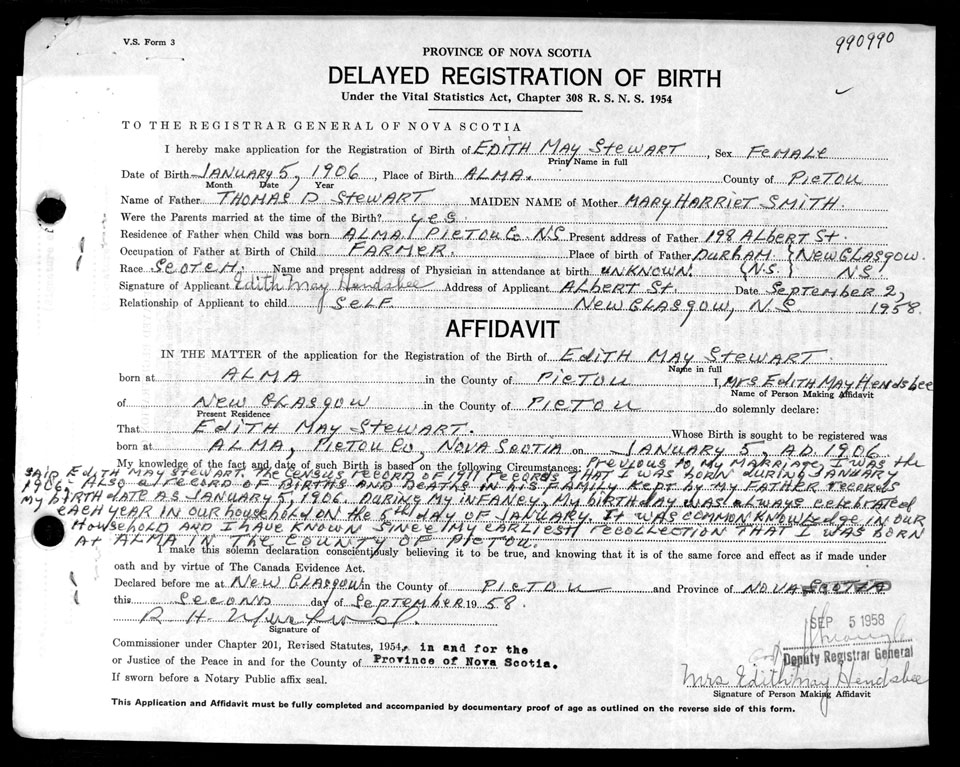 V.S. Form 3
990990
PROVINCE OF NOVA SCOTIA
DELAYED REGISTRATION OF BIRTH
Under the Vital Statistics Act, Chapter 308 R. S. N. S. 1954
TO THE REGISTRAR GENERAL OF NOVA SCOTIA
I hereby make application for the Registration of Birth of EDITH MAY STEWART, Sex FEMALE
Print Name in full
Date of Birth JANUARY 5, 1906, Place of Birth ALMA. County of PICTOU
Month Date Year
Name of Father THOMAS D STEWART MAIDEN NAME of Mother MARY HARRIET SMITH.
Were the Parents married at the time of the Birth? yes.
Residence of Father when Child was born ALMA, PICTOU Co. NS Present address of Father 198 Albert St.
Occupation of Father at Birth of Child FARMER. Place of birth of Father DURHAM NEW GLASGOW.
Race SCOTCH. Name and present address of Physician in attendance at birth UNKNOWN. N.S. N.S.
Signature of Applicant Edith May Hendsbee Address of Applicant ALBERT St. Date SEPTEMBER 2,
Relationship of Applicant to child SELF NEW GLASGOW, N.S. 1958.
AFFIDAVIT
IN THE MATTER of the application for the Registration of the Birth of EDITH MAY STEWART.
Name in full
born at ALMA in the County of PICTOU I, MRS EDITH MAY HENDSBEE
Name of Person Making Affidavit
of NEW GLASGOW in the County of PICTOU do solemnly declare:
Present Residence
That EDITH MAY STEWART. Whose Birth is sought to be registered was
born at ALMA, PICTOU Co, NOVA SCOTIA on JANUARY 5, A.D. 1906.
My knowledge of the fact and date of such Birth is based on the following Circumstances: Previous to my MARRIAGE, I WAS the
SAID EDITH MAY STEWART. THE CENSUS RECORD OF 1911 RECORDS THAT I WAS BORN DURING JANUARY
1906. ALSO A RECORD OF BIRTHS AND DEATHS IN HIS FAMILY KEPT BY MY FATHER RECORDS
MY BIRTH DATE AS JANUARY 5, 1906. DURING MY INFANCY, MY BIRTHDAY WAS ALWAYS CELEBRATED
EACH YEAR IN OUR HOUSEHOLD ON THE 5th DAY OF JANUARY. IT WAS COMMON KNOWLEDGE IN OUR
HOUSEHOLD AND I HAVE KNOWN SINCE MY EARLIEST RECOLLECTION THAT I WAS BORN
AT ALMA IN THE COUNTY OF PICTOU.
I make this solemn declaration conscientiously believing it to be true, and knowing that it is of the same force and effect as if made under
oath and by virtue of The Canada Evidence Act.
Declared before me at NEW GLASGOW in the County of PICTOU and Province of NOVA SCOTIA
this SECOND day of SEPTEMBER 1958.
R. H.
Signature of
SEP 5 1958
Commissioner under Chapter 201, Revised Statutes, 1954, in and for the
or Justice of the Peace in and for the County of Province of Nova Scotia.
Deputy Registrar General
If sworn before a Notary Public affix seal.
Mrs. Edith May Hendsbee
Signature of Person Making Affidavit
This Application and Affidavit must be fully completed and accompanied by documentary proof of age as outlined on the reverse side of this form.